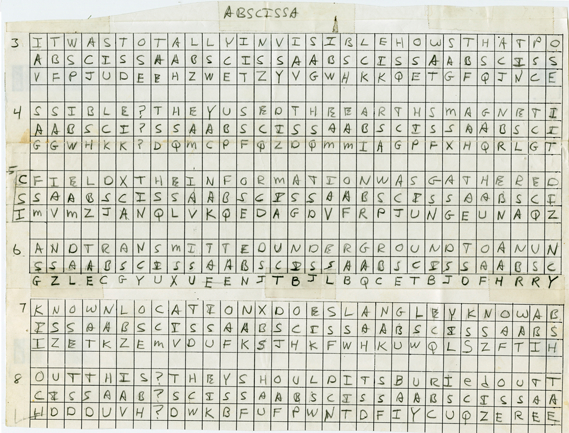 ABSCISSA
3 ITWASTOTALLYINVISIBLEHOWSTHATPO
ABSCISSAABSCISSAABSCISSAABSCISS
VFPJUDEEHZWETZYVGWHKKQETGFQJNCE
4 SSIBLE?THEYUSEDTHEEARTHSMAGNETI
AABSCI?SSAABSCISSAABSCISSAABSCI
GGWHKK?DQMCPFQZDQMMIAGPFXHQRLGT
5 CFIELDXTHEINFORMATIONWASGATHERED
SSAABSCISSAABSCISSAABSCISSAABSCI
IMVMZJANQLVKQEDAGDVFRPJUNGEUNAQZ
6 ANDTRANSMITTEDUNDERGROUNDTOANUN
SSAABSCISSAABSCISSAABSCISSAABSC
GZLECGYUXUEENJTBJLBQCETBJDFHRRY
7 KNOWNLOCATIONXDOESLANGLEYKNOWAB
ISSAABSCISSAABSCISSAABSCISSAABS
IZETKZEMVDUFKSJHKFWHKUWQLSZFTIH
8 OUTTHIS?THEYSHOULDITSBURIEDOUTT
CISSAAB?SCISSAABSCISSAABSCISSAA
HDDDUVH?DWKBFUFPWNTDFIYCUQZEREE